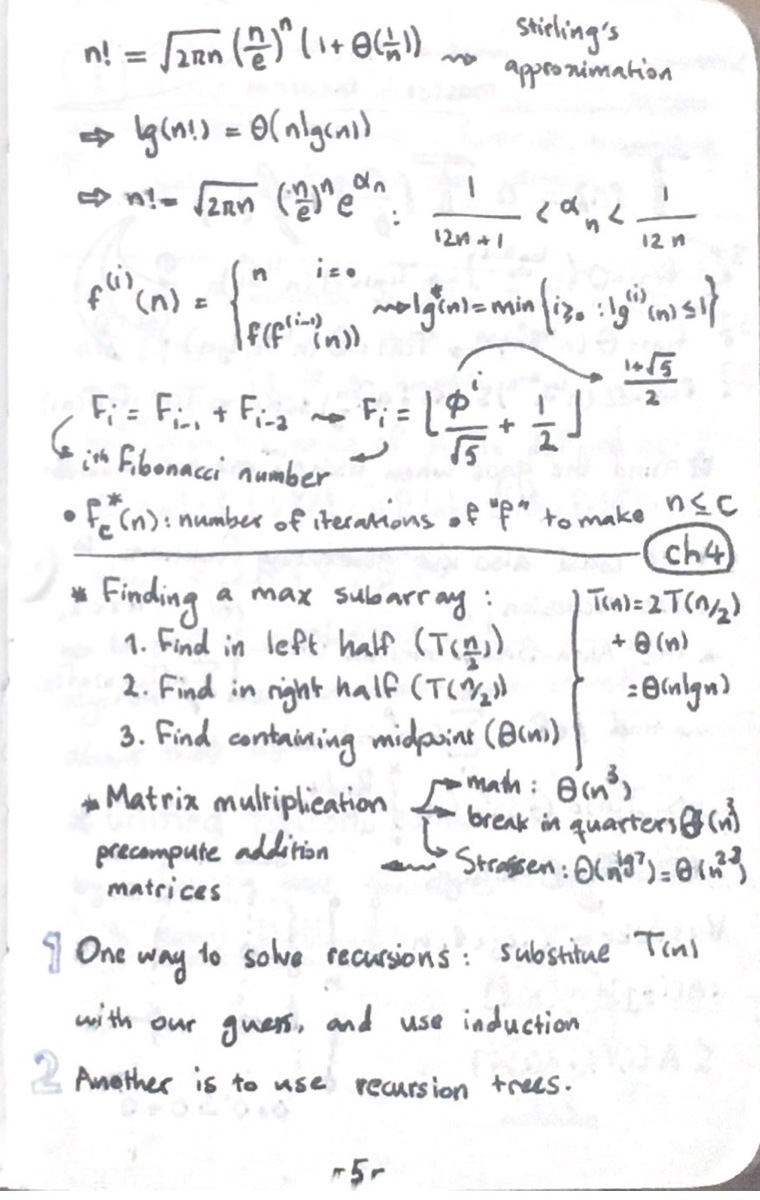 n! = √2πn (n/e)ⁿ (1 + Θ(1/n)) ⇝ Stirling's approximation
⇒ lg(n!) = Θ(n lg(n))
⇒ n! = √2πn (n/e)ⁿ e^αn : 1/(12n+1) < αn < 1/(12n)
f⁽ⁱ⁾(n) = { n i=0
f(f⁽ⁱ⁻¹⁾(n)) ⇝ lg*(n) = min{i≥0 : lg⁽ⁱ⁾(n) ≤ 1}
Fi = Fi-1 + Fi-2 → Fi = ⌊ϕⁱ/√5 + 1/2⌋ → (1+√5)/2
ith Fibonacci number
• fc*(n) : number of iterations of "f" to make n ≤ c
ch4
* Finding a max subarray :
1. Find in left half (T(n/2))
2. Find in right half (T(n/2))
3. Find containing midpoint (Θ(n))
T(n) = 2T(n/2)
+ Θ(n)
= Θ(n lg n)
* Matrix multiplication
math : Θ(n³)
break in quarters Θ(n³)
Strassen : Θ(n^lg7) = Θ(n^2.8)
precompute addition
matrices
1 One way to solve recursions : substitue T(n)
with our guess, and use induction
2 Another is to use recursion trees.
-5-